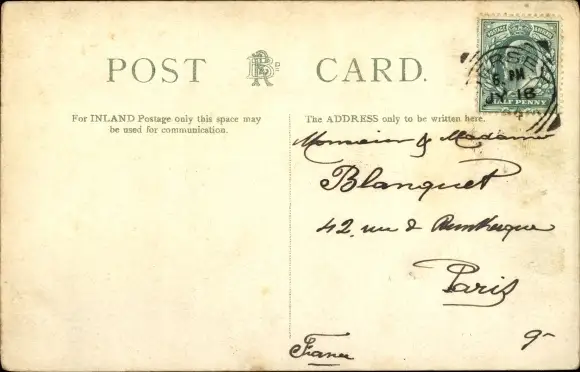 POST CARD.
For INLAND Postage only this space may
be used for communication.
The ADDRESS only to be written here.
Monsieur & Madame
Blanquet
42, rue de Dunkerque
Paris
France
9-
JERSEY
6. PM
JY 18
HALF PENNY